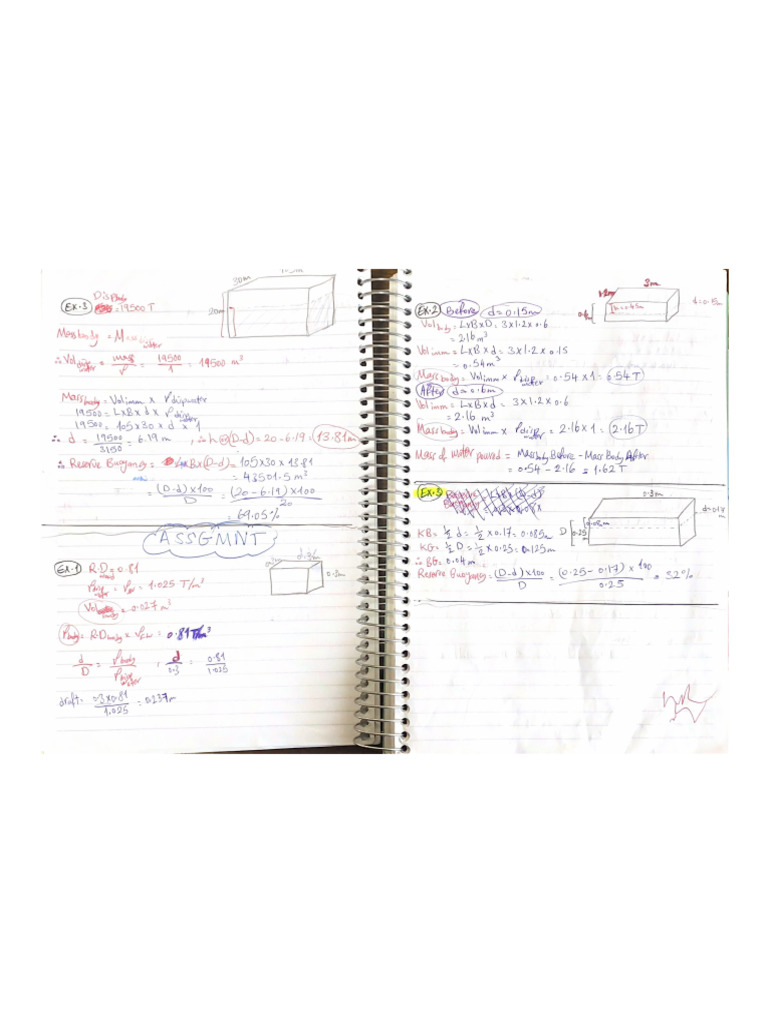 30m
20m
EX-3
Disp
= 19500 T
Mass body = Mass water
∴ Vol disp water = mass / ρ = 19500 / 1 = 19500 m³
Mass body = Vol imm x ρ disp water
19500 = L x B x d x ρ disp water
19500 = 105 x 30 x d x 1
∴ d = 19500 / 3150 = 6.19 m , ∴ h (D-d) = 20 - 6.19 = 13.81m
∴ Reserve Buoyancy = LxBx(D-d) = 105x30x 13.81
= 43501.5 m³
= (D-d) x100 / D = (20-6.19) x100 / 20
= 69.05%
ASSGMNT
EX-1 R.D = 0.81
ρ water = ρ = 1.025 T/m³
0.3m
Vol body = 0.027 m³
ρ body = R.D body x ρ FW = 0.81 T/m³
d / D = ρ body / ρ water , d / 0.3 = 0.81 / 1.025
draft = 0.3x0.81 / 1.025 = 0.237m
3m
1.2m
h=0.45m
d=0.15m
0.6
EX-2 Before d=0.15m
Vol body = LxBxD = 3x1.2x0.6
= 2.16 m³
Vol imm = LxBxd = 3x1.2x0.15
= 0.54m³
Mass body = Vol imm x ρ disp water = 0.54 x1 = 0.54T
After d=0.6m
Vol imm = LxBxd = 3x1.2x0.6
= 2.16 m³
Mass body = Vol imm x ρ disp water = 2.16 x1 = 2.16T
Mass of water poured = Mass body Before - Mass Body After
= 0.54 - 2.16 = 1.62 T
EX-3
0.8m
d=0.17
m
D 0.25
KB = ½ d = ½ x 0.17 = 0.085m
KG = ½ D = ½ x 0.25 = 0.125m
∴ BG = 0.04m
Reserve Buoyancy = (D-d) x100 / D = (0.25 - 0.17) x 100 / 0.25 = 32%